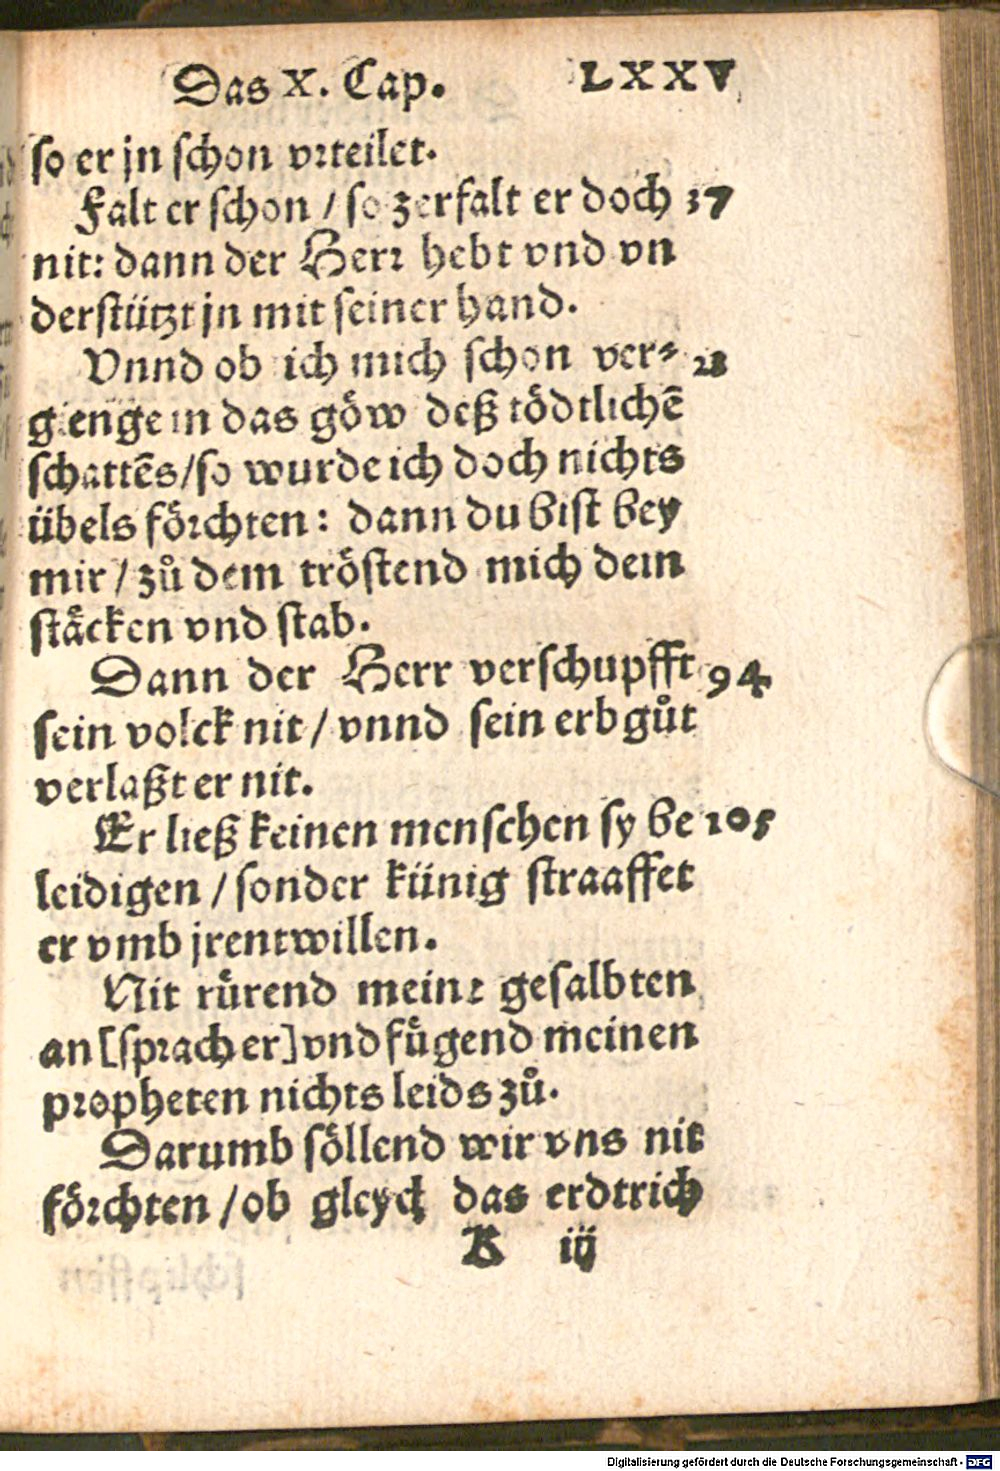 Das X. Cap. LXXV
so er jn schon vrteilet.
Falt er schon / so zerfalt er doch 37
nit: dann der Herr hebt vnd vn
derstützt jn mit seiner hand.
Vnnd ob ich mich schon ver⸗ 23
gienge in das göw deß tödtlichē
schattēs/so wurde ich doch nichts
übels förchten: dann du bist bey
mir / zů dem tröstend mich dein
stäcken vnd stab.
Dann der Herr verschupfft 94
sein volck nit / vnnd sein erbgůt
verlaßt er nit.
Er ließ keinen menschen sy be 105
leidigen / sonder künig straaffet
er vmb jrentwillen.
Nit rürend meine gesalbten
an [sprach er] vnd fügend meinen
propheten nichts leids zů.
Darumb söllend wir vns nit
förchten / ob gleych das erdtrich
K iij
Digitalisierung gefördert durch die Deutsche Forschungsgemeinschaft - DFG